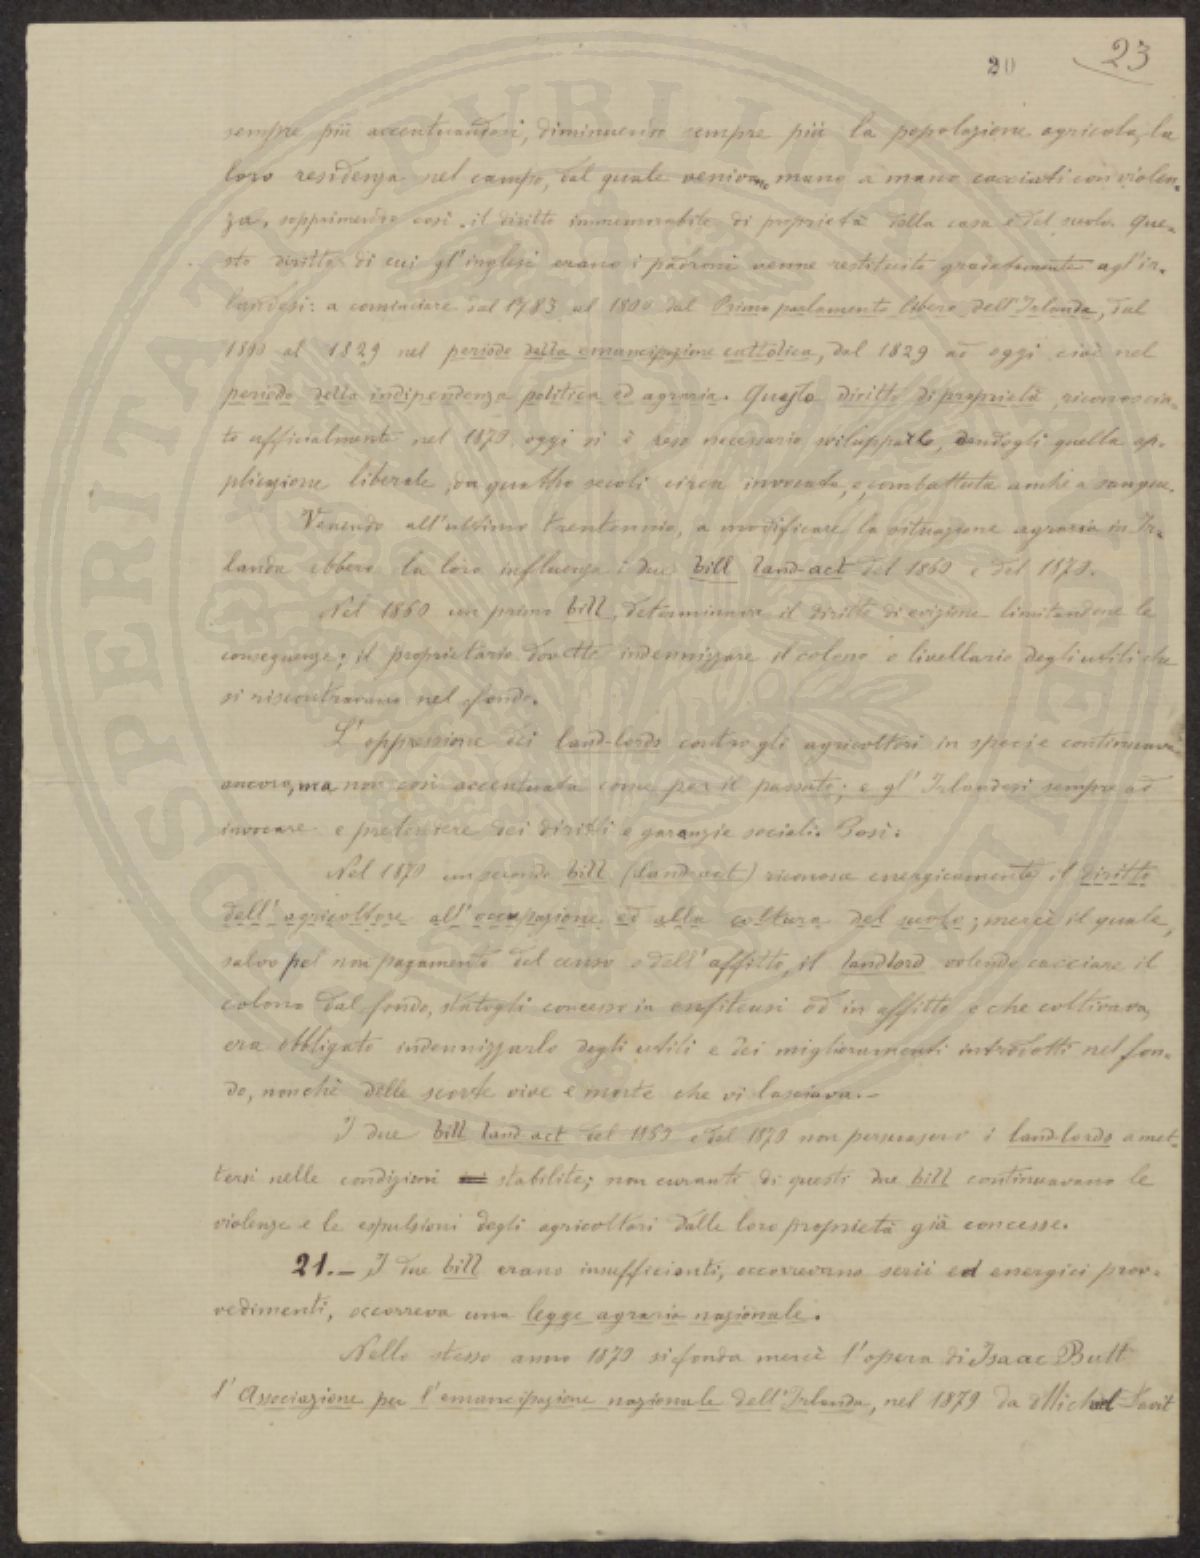 20 23
sempre più accentuandosi, diminuendo sempre più la popolazione agricola, la
loro residenza nel campo, dal quale venivano mano a mano cacciati con violen-
za, sopprimendo così il diritto immemorabile di proprietà della casa e del suolo. Que-
sto diritto di cui gl'inglesi erano i padroni venne restituito gradatamente agl'ir-
landesi: a cominciare dal 1783 al 1800 dal Primo parlamento libero dell'Irlanda, dal
1800 al 1829 nel periodo della emancipazione cattolica, dal 1829 ad oggi cioè nel
periodo della indipendenza politica ed agraria. Questo diritto di proprietà riconosciu-
to ufficialmente nel 1870 oggi si è reso necessario svilupparlo, dandogli quella ap-
plicazione liberale, da quattro secoli circa invocata, e combattuta anche a sangue.
Venendo all'ultimo trentennio, a modificare la situazione agraria in Ir-
landa ebbero la loro influenza i due bill land-act del 1860 e del 1870.
Nel 1860 un primo bill, determinava il diritto di evizione limitandone le
conseguenze; il proprietario dovette indennizzare il colono o livellario degli utili che
si riscontravano nel fondo.
L'oppressione dei land-lords contro gli agricoltori in specie continuava
ancora, ma non così accentuata come per il passato; e gl'Irlandesi sempre ad
invocare e pretendere dei diritti e garanzie sociali. Così:
Nel 1870 un secondo bill (land-act) riconosce energicamente il diritto
dell'agricoltore all'occupazione ed alla coltura del suolo; mercè il quale,
salvo pel non pagamento del censo o dell'affitto, il landlord volendo cacciare il
colono dal fondo, statogli concesso in enfiteusi od in affitto e che coltivava,
era obbligato indennizzarlo degli utili e dei miglioramenti introdotti nel fon-
do, nonchè delle scorte vive e morte che vi lasciava.-
I due bill land-act del 1860 e del 1870 non persuasero i land-lords a met-
tersi nelle condizioni stabilite; non curanti di questi due bill continuavano le
violenze e le espulsioni degli agricoltori dalle loro proprietà già concesse.
21.- I due bill erano insufficienti, occorrevano serii ed energici prov-
vedimenti, occorreva una legge agraria nazionale.
Nello stesso anno 1870 si fonda mercè l'opera di Isaac Butt
l'Associazione per l'emancipazione nazionale dell'Irlanda, nel 1879 da Michael Davit